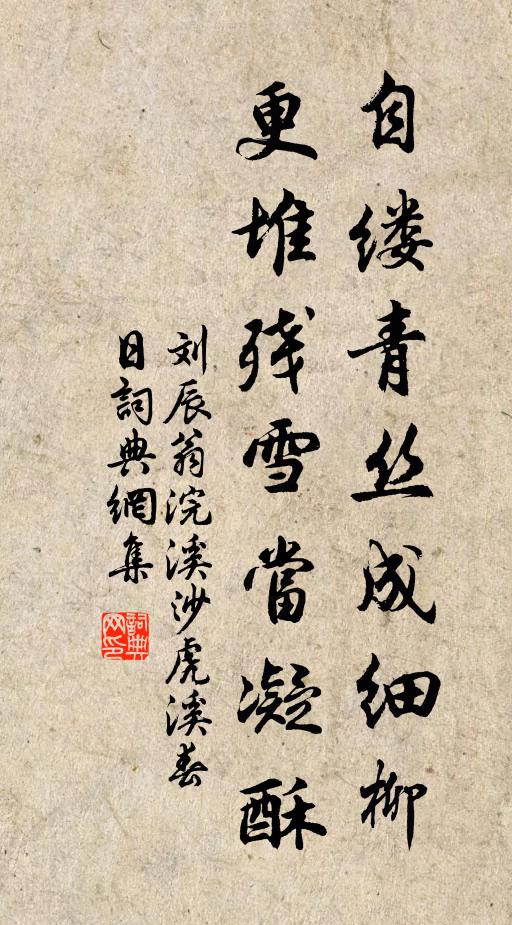 自缕青丝成细柳
更堆残雪當凝酥
刘辰翁浣溪沙虎溪春
日詞典網集
詞典网印